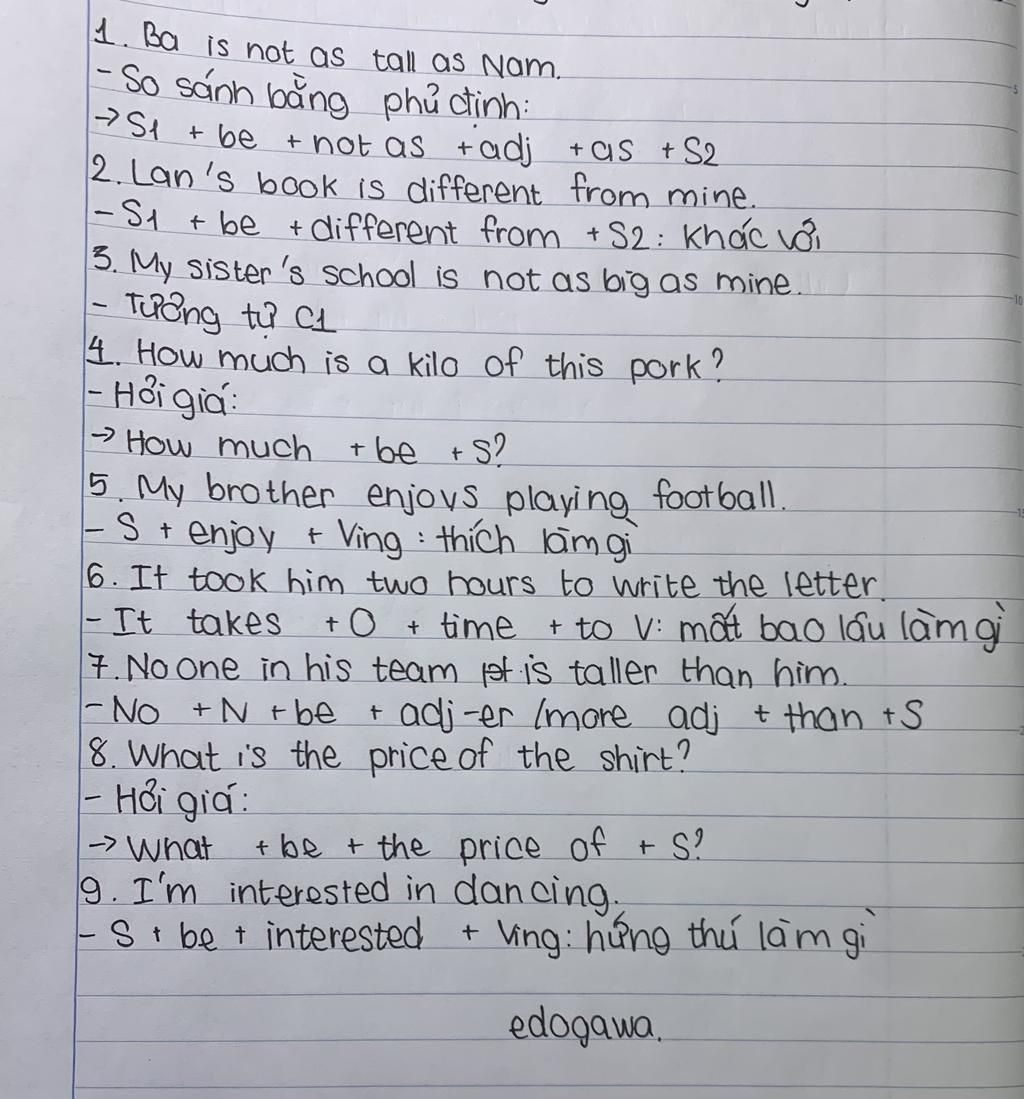 1. Ba is not as tall as Nam.
- So sánh bằng phủ định:
→ S1 + be + not as + adj + as + S2
2. Lan's book is different from mine.
- S1 + be + different from + S2: khác với
3. My sister's school is not as big as mine.
- Tương tự C1
4. How much is a kilo of this pork?
- Hỏi giá:
→ How much + be + S?
5. My brother enjoys playing football.
- S + enjoy + Ving : thích làm gì
6. It took him two hours to write the letter.
- It takes + O + time + to V: mất bao lâu làm gì
7. No one in his team is taller than him.
- No + N + be + adj-er /more adj + than + S
8. What is the price of the shirt?
- Hỏi giá:
→ What + be + the price of + S?
9. I'm interested in dancing.
- S + be + interested + Ving: hứng thú làm gì
edogawa.